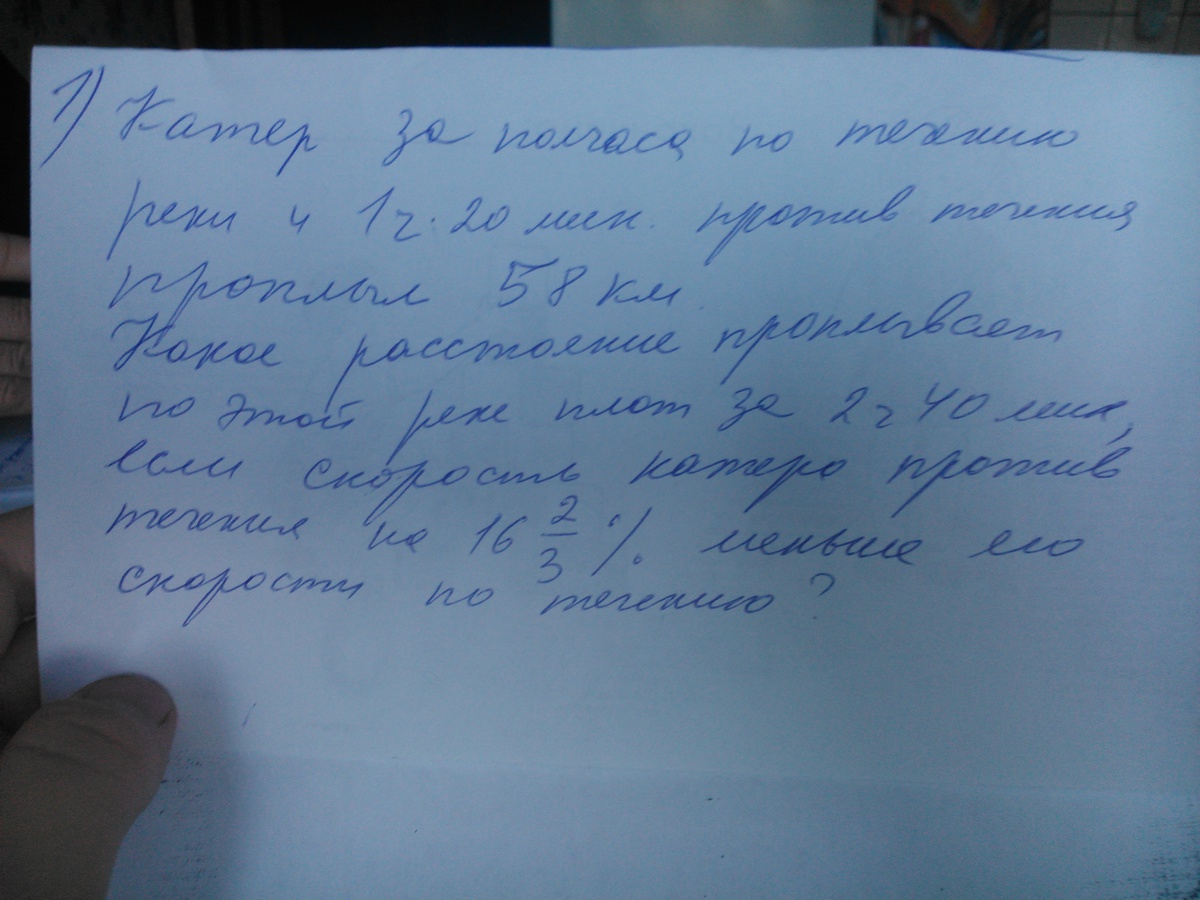 1) Катер за полчаса по течению
реки и 1ч. 20 мин. против течения
проплыл 58 км.
Какое расстояние проплывает
по этой реке плот за 2ч 40 мин,
если скорость катера против
течения на 16 2/3 % меньше его
скорости по течению?